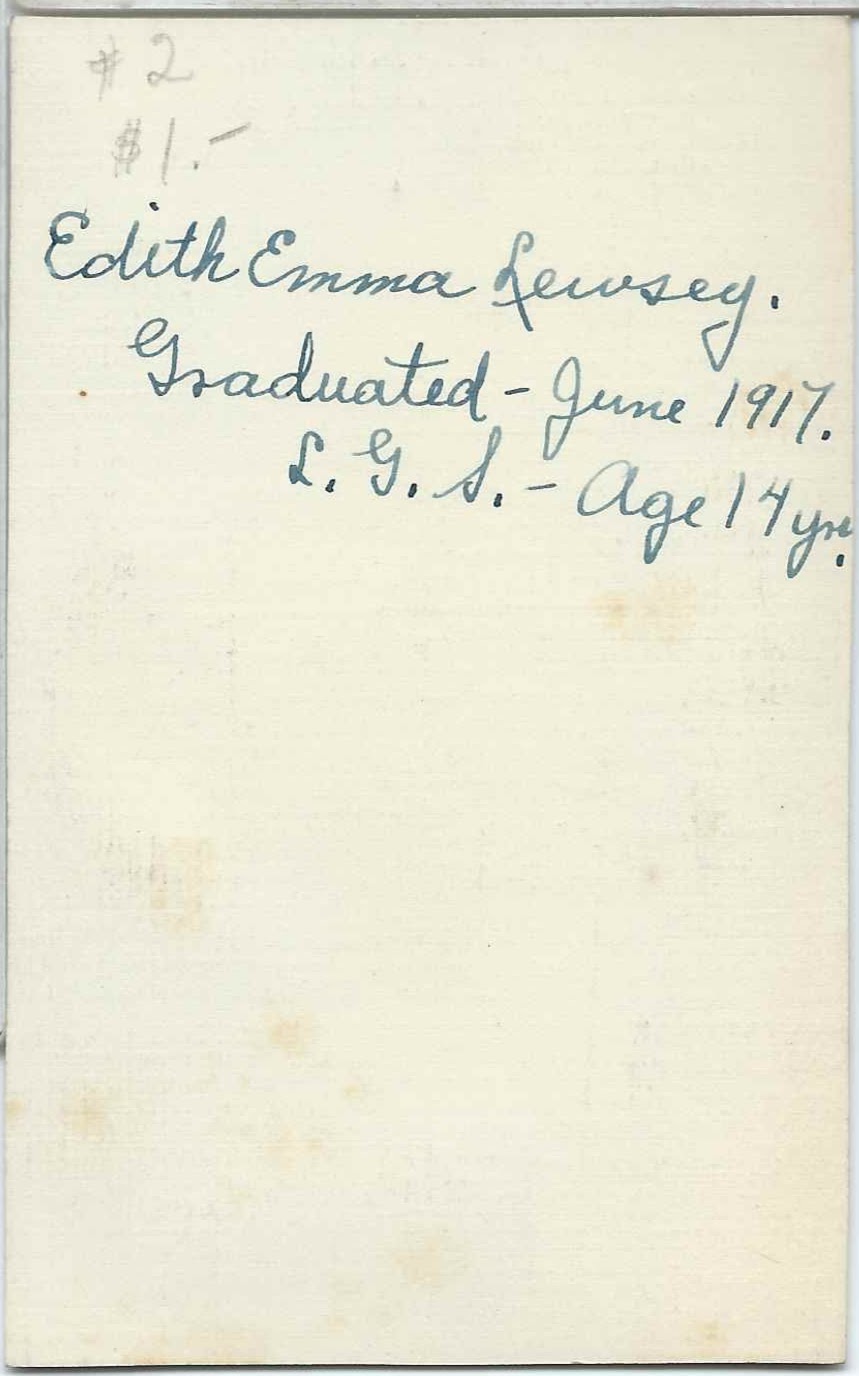 # 2
$1.-
Edith Emma Lewsey.
Graduated - June 1917.
L. G. S. - Age 14 yrs.